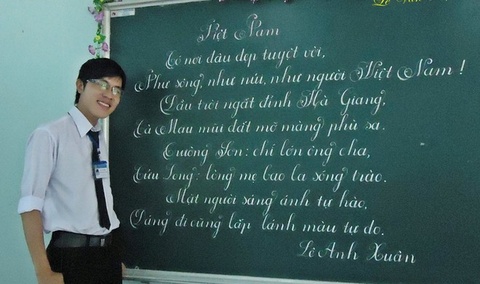 Việt Nam
Có nơi đâu đẹp tuyệt vời,
Như sông, như núi, như người Việt Nam !
Đầu trời ngất đỉnh Hà Giang.
Cà Mau mũi đất mỡ màng phù sa.
Trường Sơn: chí lớn ông cha,
Cửu Long: lòng mẹ bao la sóng trào.
Mặt người sáng ánh tự hào,
Dáng đi cũng lấp lánh màu tự do.
Lê Anh Xuân